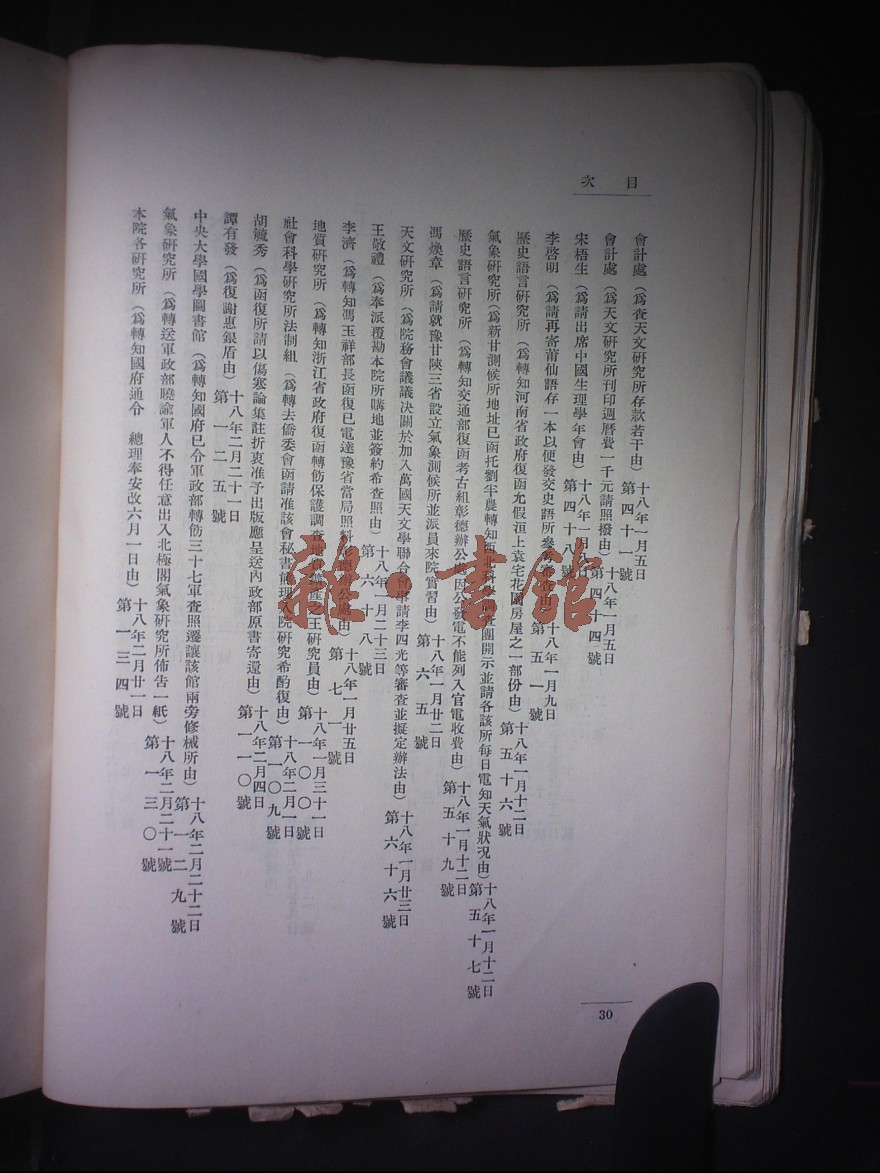 目次
會計處（爲查天文研究所存款若干由）十八年一月五日第四十一號
會計處（爲天文研究所刊印週曆費一千元請照撥由）十八年一月五日第四十四號
宋梧生（爲請出席中國生理學年會由）十八年一月九日第四十八號
李啓明（爲請再寄莆仙語存一本以便發交史語所參考由）十八年一月九日第五一號
歷史語言研究所（爲轉知河南省政府復函允假洹上袁宅花園房屋之一部份由）十八年一月十二日第五十六號
氣象研究所（爲新甘測候所地址已函托劉半農轉知西北科學查團開示並請各該所每日電知天氣狀況由）十八年一月十二日第五十七號
歷史語言研究所（爲轉知交通部復函考古組彰德辦公處因公發電不能列入官電收費由）十八年一月十二日第五十九號
馮煥章（爲請就豫甘陝三省設立氣象測候所並派員來院實習由）十八年一月廿二日第六五號
天文研究所（爲院務會議議决關於加入萬國天文學聯合會事請李四光等審查並擬定辦法由）十八年一月廿三日第六十六號
王敬禮（爲奉派覆勘本院所購地並簽約希查照由）十八年一月二十三日第六十八號
李濟（爲轉知馮玉祥部長函復已電達豫省當局照料彰德辦公處由）十八年一月廿五日第七一號
地質研究所（爲轉知浙江省政府復函轉飭保護調查地質鑛產之王研究員由）十八年一月三十一日第一〇〇號
社會科學研究所法制組（爲轉去僑委會函請准該會秘書熊理入院研究希酌復由）十八年二月一日第一〇九號
胡毓秀（爲函復所請以傷寒論集註折衷准予出版應呈送內政部原書寄還由）十八年二月四日第一一〇號
譚有發（爲復謝惠銀盾由）十八年二月二十一日第一二五號
中央大學國學圖書館（爲轉知國府已令軍政部轉飭三十七軍查照遷讓該館兩旁修械所由）十八年二月二十二日第一二九號
氣象研究所（爲轉送軍政部曉諭軍人不得任意出入北極閣氣象研究所佈告一紙）十八年二月二十一號第一三〇號
本院各研究所（爲轉知國府通令　總理奉安改六月一日由）十八年二月廿一日第一三四號
30
雜·書館